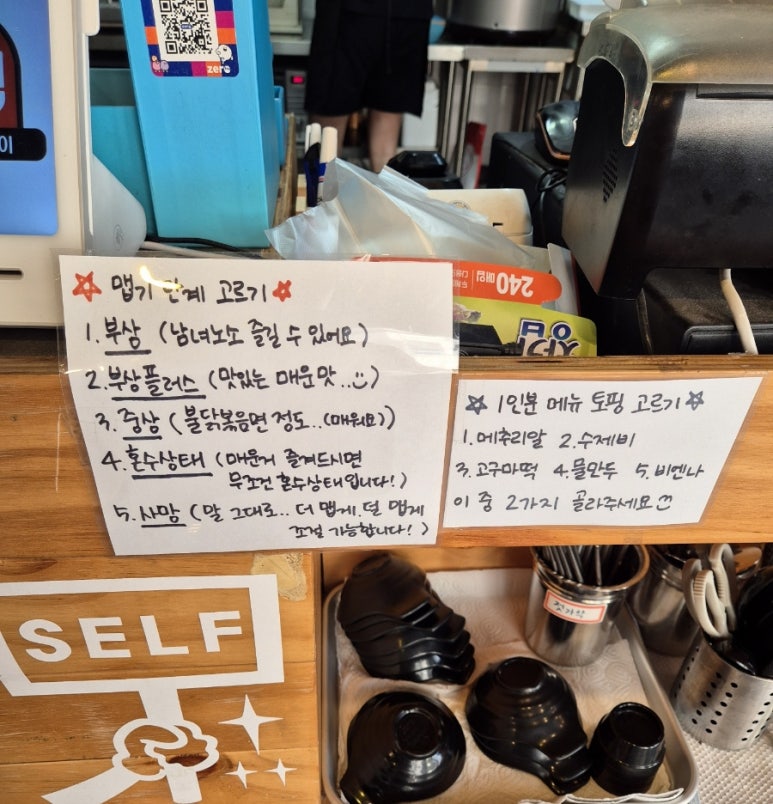 zero
이
240매입
☆ 맵기 단계 고르기 ☆
1. 부상 (남녀노소 즐길 수 있어요)
2. 부상플러스 (맛있는 매운맛..☺)
3. 중상 (불닭볶음면 정도..(매워요))
4. 혼수상태 (매운거 즐겨드시면
무조건 혼수상태입니다!)
5. 사망 (말 그대로.. 더 맵게, 덜 맵게
조절 가능합니다!)
☆ 1인분 메뉴 토핑 고르기 ☆
1. 메추리알 2. 수제비
3. 고구마떡 4. 물만두 5. 비엔나
이 중 2가지 골라주세요☺
SELF
젓가락